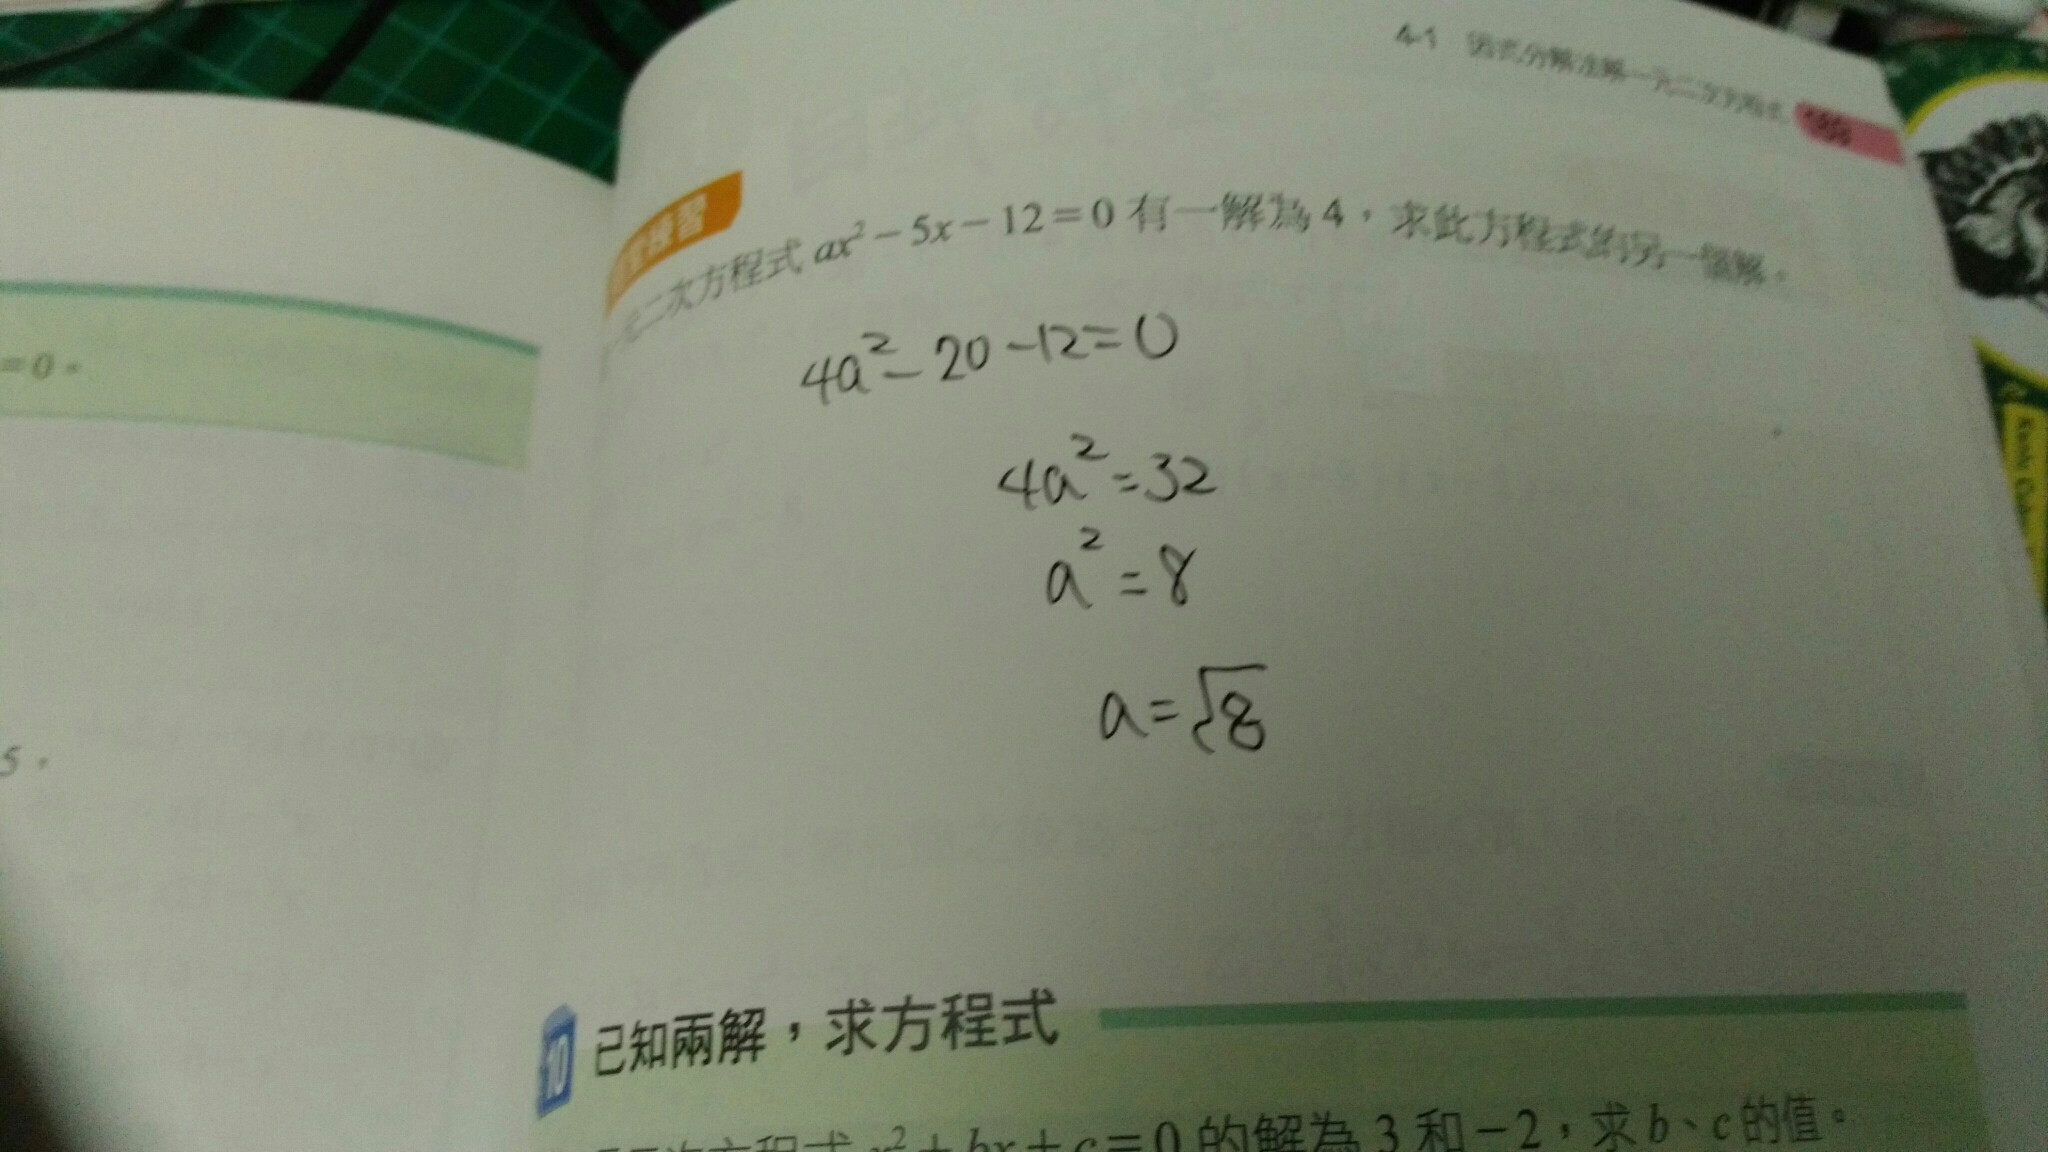 4-1 因式分解法解一元二次方程式
練習
元二次方程式 ax²－5x－12＝0 有一解為 4，求此方程式的另一個解。
4a²－20－12＝0
4a²＝32
a²＝8
a＝√8
＝0。
5。
10 已知兩解，求方程式
次方程式 x²＋bx＋c＝0 的解為 3 和－2，求 b、c 的值。